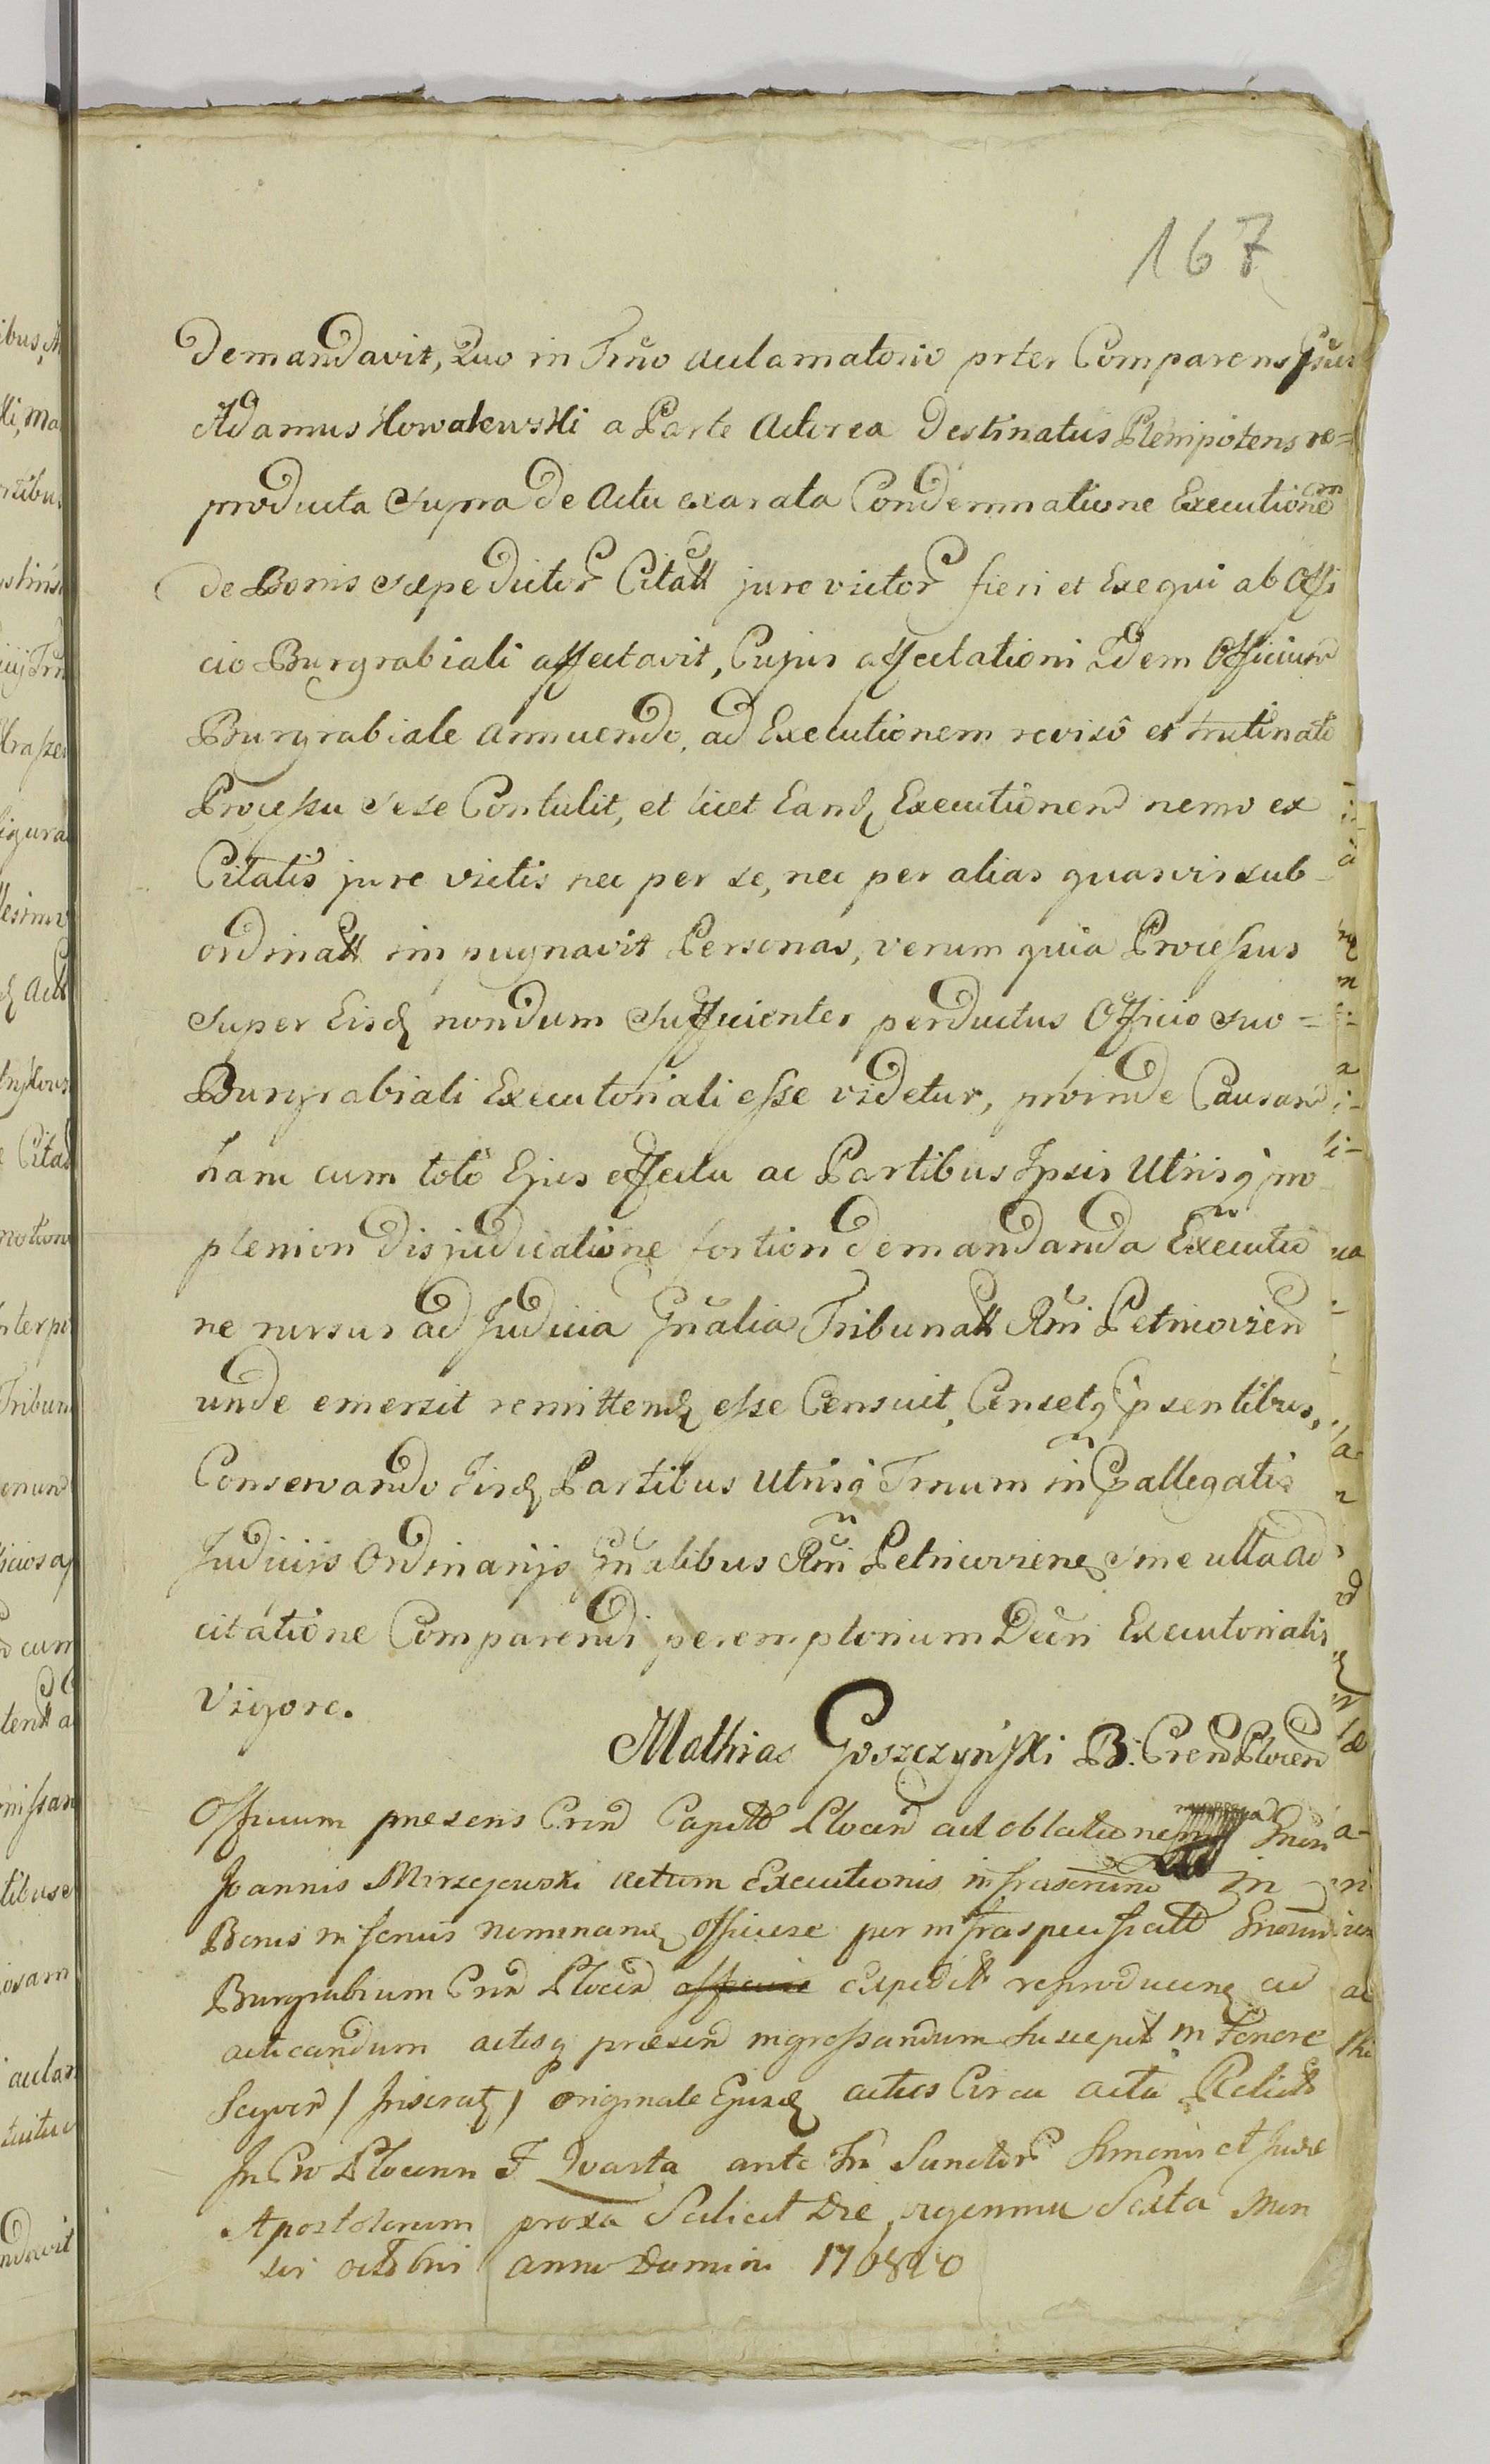 167
Demandavit, Quo in Trño acclamatorio prter Comparens Gñsus
Adamus Kowalewski a Parte Actorea Destinatus Plenipotens re=
producta Supra de Actu exarata Condemnatione Executionem
de Bonis Sæpe dictor Citatt jure victor fieri et Exequi ab Offi
cio Burgrabiali affectavit, Cujus affectationi Idem Officium
Burgrabiale annuendo, ad Executionem reviso et trutinato
Processu Sese Contulit, et licet Eandq Executionem nemo ex
Citatis jure victis nec per se, nec per alias quasvis sub-
ordinatt impugnavit Personas, verum quia Processus
Super Eisdq nondum Sufficienter perductus Officio suo =
Burgrabiali Executoriali esse videtur, proinde Causam
hanc cum toto Ejus effectu ac Partibus Ipsis Utrisq pro
pleniori disjudicatione fortiori demandanda Executio
ne rursus ad Judicia Gñalia Tribunatt Rñi Petricovien
unde emersit remittendq esse Censuit, Censetq Ppsentibus,
Conservando Eisdq Partibus Utrisq Trnum in Ppallegatis
Judiciis Ordinarijs Gñalibus Rñi Petricoviens Sine ulla ad
citatione Comparendi peremptorium Decñ Executorialis
Vigore.
Mathias Goszczyński B: Cren Plocen
Officium præsens Cren Capitl Plocen ad oblationem Gnesi
Joannis Mirzejewski actum Executionis infrascriend In
Bonis inferius nominans Officiose per infraspecificatt Gnosum
Burgrabium Cren Plocen officiose expedit reproducens ad
acticandum actisq præsen ingrossandum Suscepit in Tenore
Seqven / Inserat / originale Ejusdq actus Circa acta Relict
In Cro Plocenn F Qvarta ante Fn Sanctor Simonis et Judæ
Apostolorum proxa Scilicet Die vigesima Sexta Men
sis octobris anno Domini